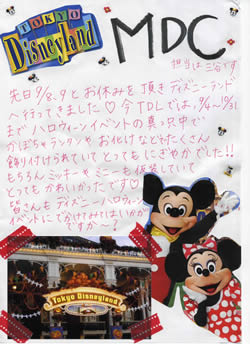 TOKYO
Disneyland
MDC
担当は三谷です
先日9/8、9とお休みを頂きディズニーランド
へ行ってきました♡今TDLでは、9/14〜10/31
まで ハロウィーンイベントの真っ只中で
かぼちゃランタンや お化けなどがたくさん
飾り付けられていて とってもにぎやかでした!!
もちろん ミッキーや ミニーも仮装していて
とってもかわいかったです♡
皆さんも ディズニーハロウィーン
イベントにでかけてみてはいかが
ですか〜?
Tokyo Disneyland